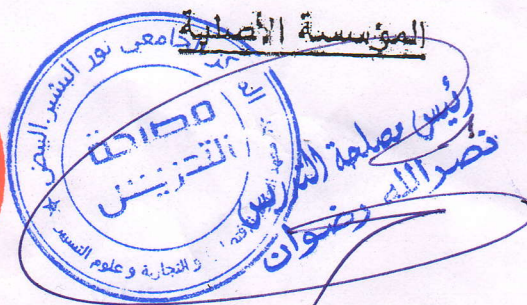 المؤسسة الأصلية
جامعي نور البشير البيض
مصلحة
التدريس
والتجارية و علوم التسيير
رئيس مصلحة التدريس
نصر الله رضوان